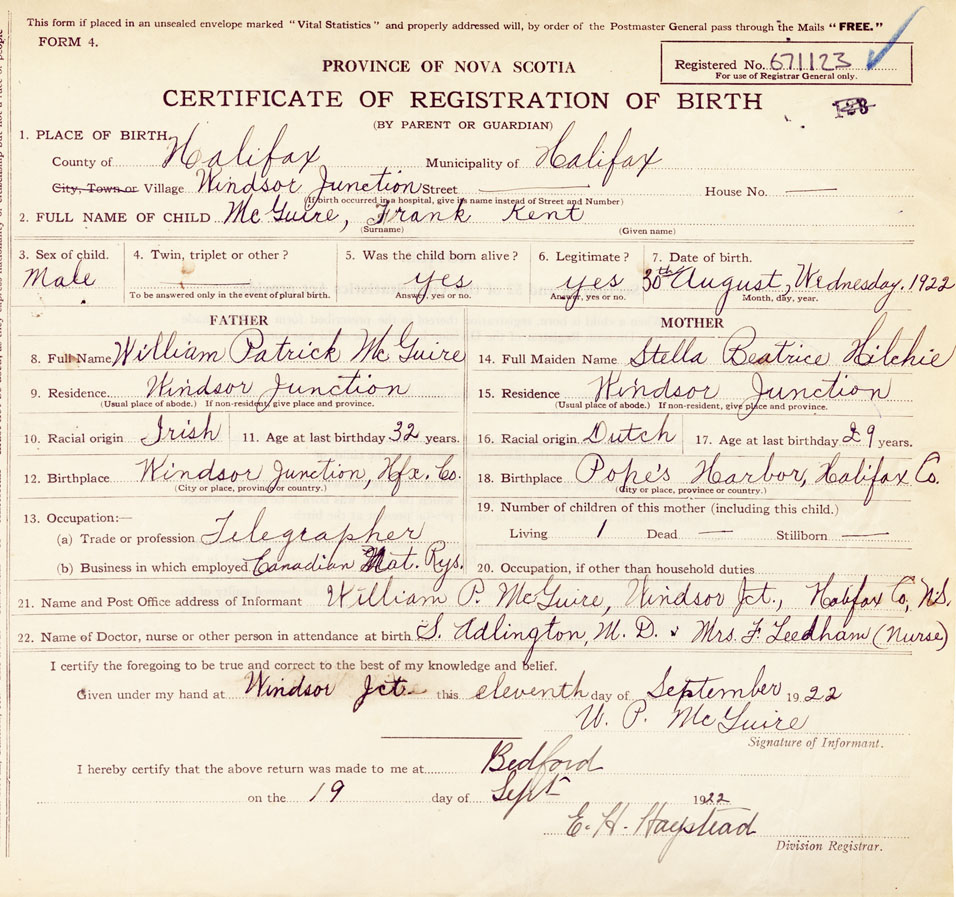 This form if placed in an unsealed envelope marked "Vital Statistics" and properly addressed will, by order of the Postmaster General pass through the Mails "FREE."
FORM 4.
Registered No. 671123
For use of Registrar General only.
PROVINCE OF NOVA SCOTIA
CERTIFICATE OF REGISTRATION OF BIRTH
(BY PARENT OR GUARDIAN)
1. PLACE OF BIRTH,
County of Halifax Municipality of Halifax
City, Town or Village Windsor Junction Street House No.
(If birth occurred in a hospital, give its name instead of Street and Number)
2. FULL NAME OF CHILD McGuire, Frank Kent
(Surname) (Given name)
3. Sex of child. 4. Twin, triplet or other? 5. Was the child born alive? 6. Legitimate? 7. Date of birth.
Male yes yes 30th August, Wednesday. 1922
To be answered only in the event of plural birth. Answer, yes or no. Answer, yes or no. Month, day, year.
FATHER MOTHER
8. Full Name William Patrick McGuire 14. Full Maiden Name Stella Beatrice Hilchie
9. Residence Windsor Junction 15. Residence Windsor Junction
(Usual place of abode.) If non-resident, give place and province. (Usual place of abode.) If non-resident, give place and province.
10. Racial origin Irish 11. Age at last birthday 32 years. 16. Racial origin Dutch 17. Age at last birthday 29 years.
12. Birthplace Windsor Junction, Hfx. Co. 18. Birthplace Pope's Harbor, Halifax Co.
(City or place, province or country.) (City or place, province or country.)
13. Occupation:— 19. Number of children of this mother (including this child.)
(a) Trade or profession Telegrapher Living 1 Dead — Stillborn —
(b) Business in which employed Canadian Nat. Rys. 20. Occupation, if other than household duties
21. Name and Post Office address of Informant William P. McGuire, Windsor Jct., Halifax Co, N.S.
22. Name of Doctor, nurse or other person in attendance at birth S. Adlington, M.D. & Mrs. F. Leedham (Nurse)
I certify the foregoing to be true and correct to the best of my knowledge and belief.
Given under my hand at Windsor Jct. this eleventh day of September 1922
W. P. McGuire
Signature of Informant.
I hereby certify that the above return was made to me at Bedford
on the 19 day of Sept 1922
E. H. Haystead
Division Registrar.